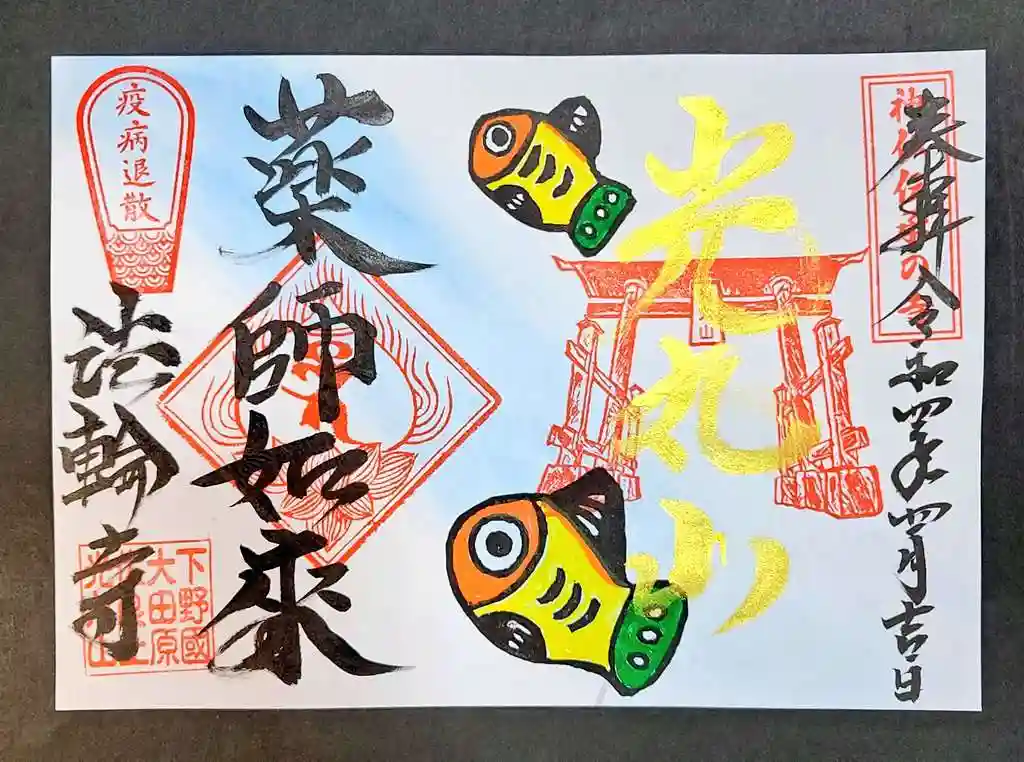 奉拝 令和四年四月吉日
光丸山
山
薬師如来
疫病退散
法輪寺
下野國
大田原